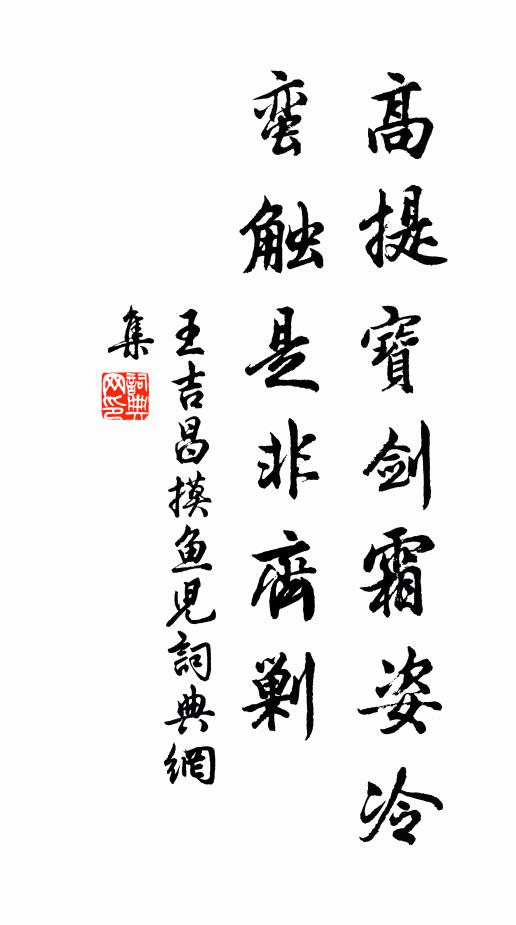 高提寶劍霜姿冷
蛮触是非齊剿
王吉昌摸鱼児詞典網
集
詞典
网印